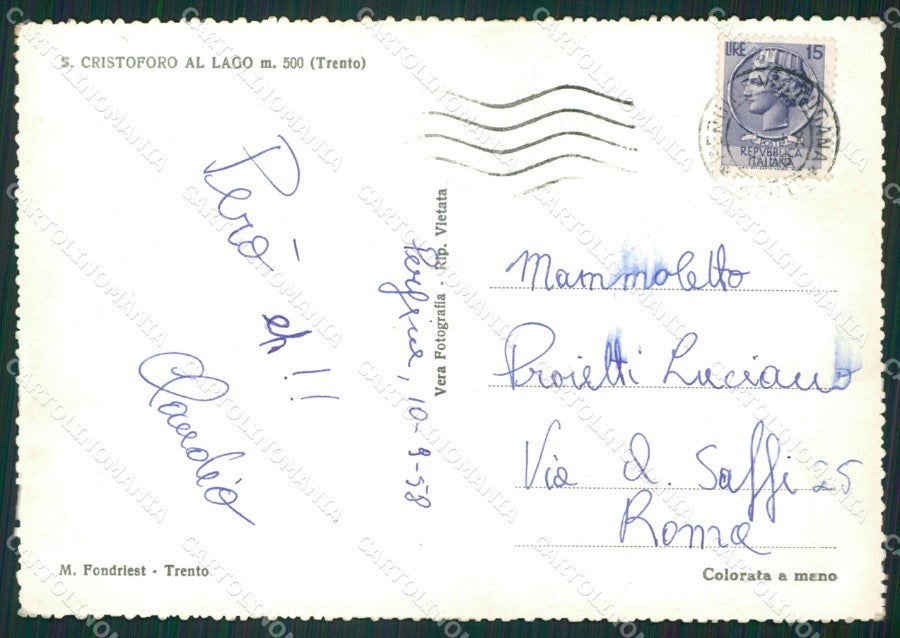 S. CRISTOFORO AL LAGO m. 500 (Trento)
LIRE 15
POSTE
REPVBBLICA
ITALIANA
Però eh!!
Claudio
Pergine, 10-9-58
Vera Fotografia - Rip. Vietata
Mammoletto
Proietti Luciano
Via A. Saffi 25
Roma
M. Fondriest - Trento
Colorata a mano
CARTOLINOMANIA